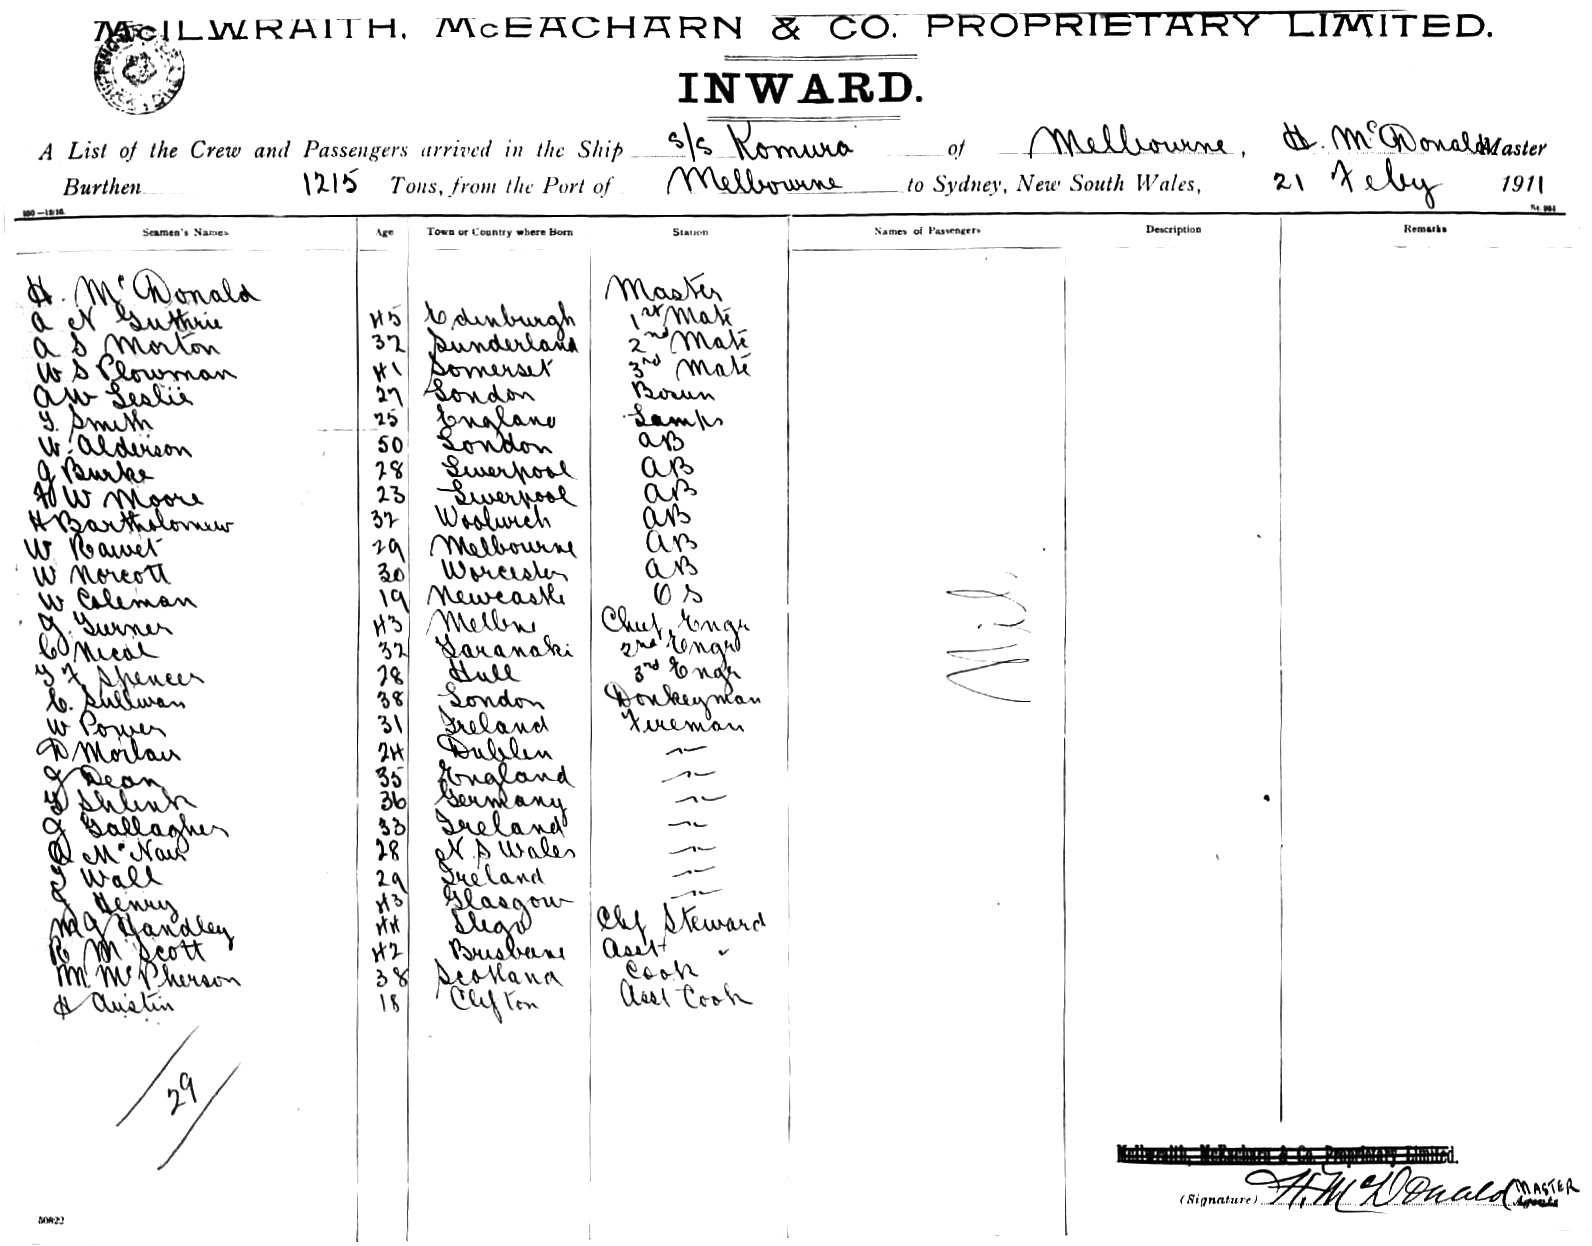 McILWRAITH, McEACHARN & CO. PROPRIETARY LIMITED.
INWARD.
A List of the Crew and Passengers arrived in the Ship s/s Komura of Melbourne, H. McDonald Master
Burthen 1215 Tons, from the Port of Melbourne to Sydney, New South Wales, 21 Feby 1911
Seamen's Names Age Town or Country where Born Station Names of Passengers Description Remarks
H. McDonald Master
A N Guthrie 45 Edinburgh 1st Mate
A S Morton 32 Sunderland 2nd Mate
W S Plowman 41 Somerset 3rd Mate
A W Leslie 27 London Bosun
T. Smith 25 England Lamps
W. Alderson 50 London AB
J Burke 28 Liverpool AB
W Moore 23 Liverpool AB
H Bartholomew 32 Woolwich AB
W 29 Melbourne AB
W Norcott 30 Worcester AB
W Coleman 19 Newcastle OS
J. Turner 43 Melbne Chief Engr
C Nicol 32 Taranaki 2nd Engr
T F Spencer 28 Hull 3rd Engr
C. Sullivan 38 London Donkeyman
W Power 31 Ireland Fireman
D 24 Dublin "
J Dean 35 England "
T Shlink 36 Germany "
J Gallagher 33 Ireland "
McNair 28 N S Wales "
T Wall 29 Ireland "
J Henry 43 Glasgow "
M J Handley 44 Sligo Chf Steward
R M Scott 42 Brisbane Asst "
M McPherson 38 Scotland Cook
H Austin 18 Clifton Asst Cook
Nil
29
McIlwraith, McEacharn & Co. Proprietary Limited.
(Signature) H. McDonald MASTER
Agents
50822